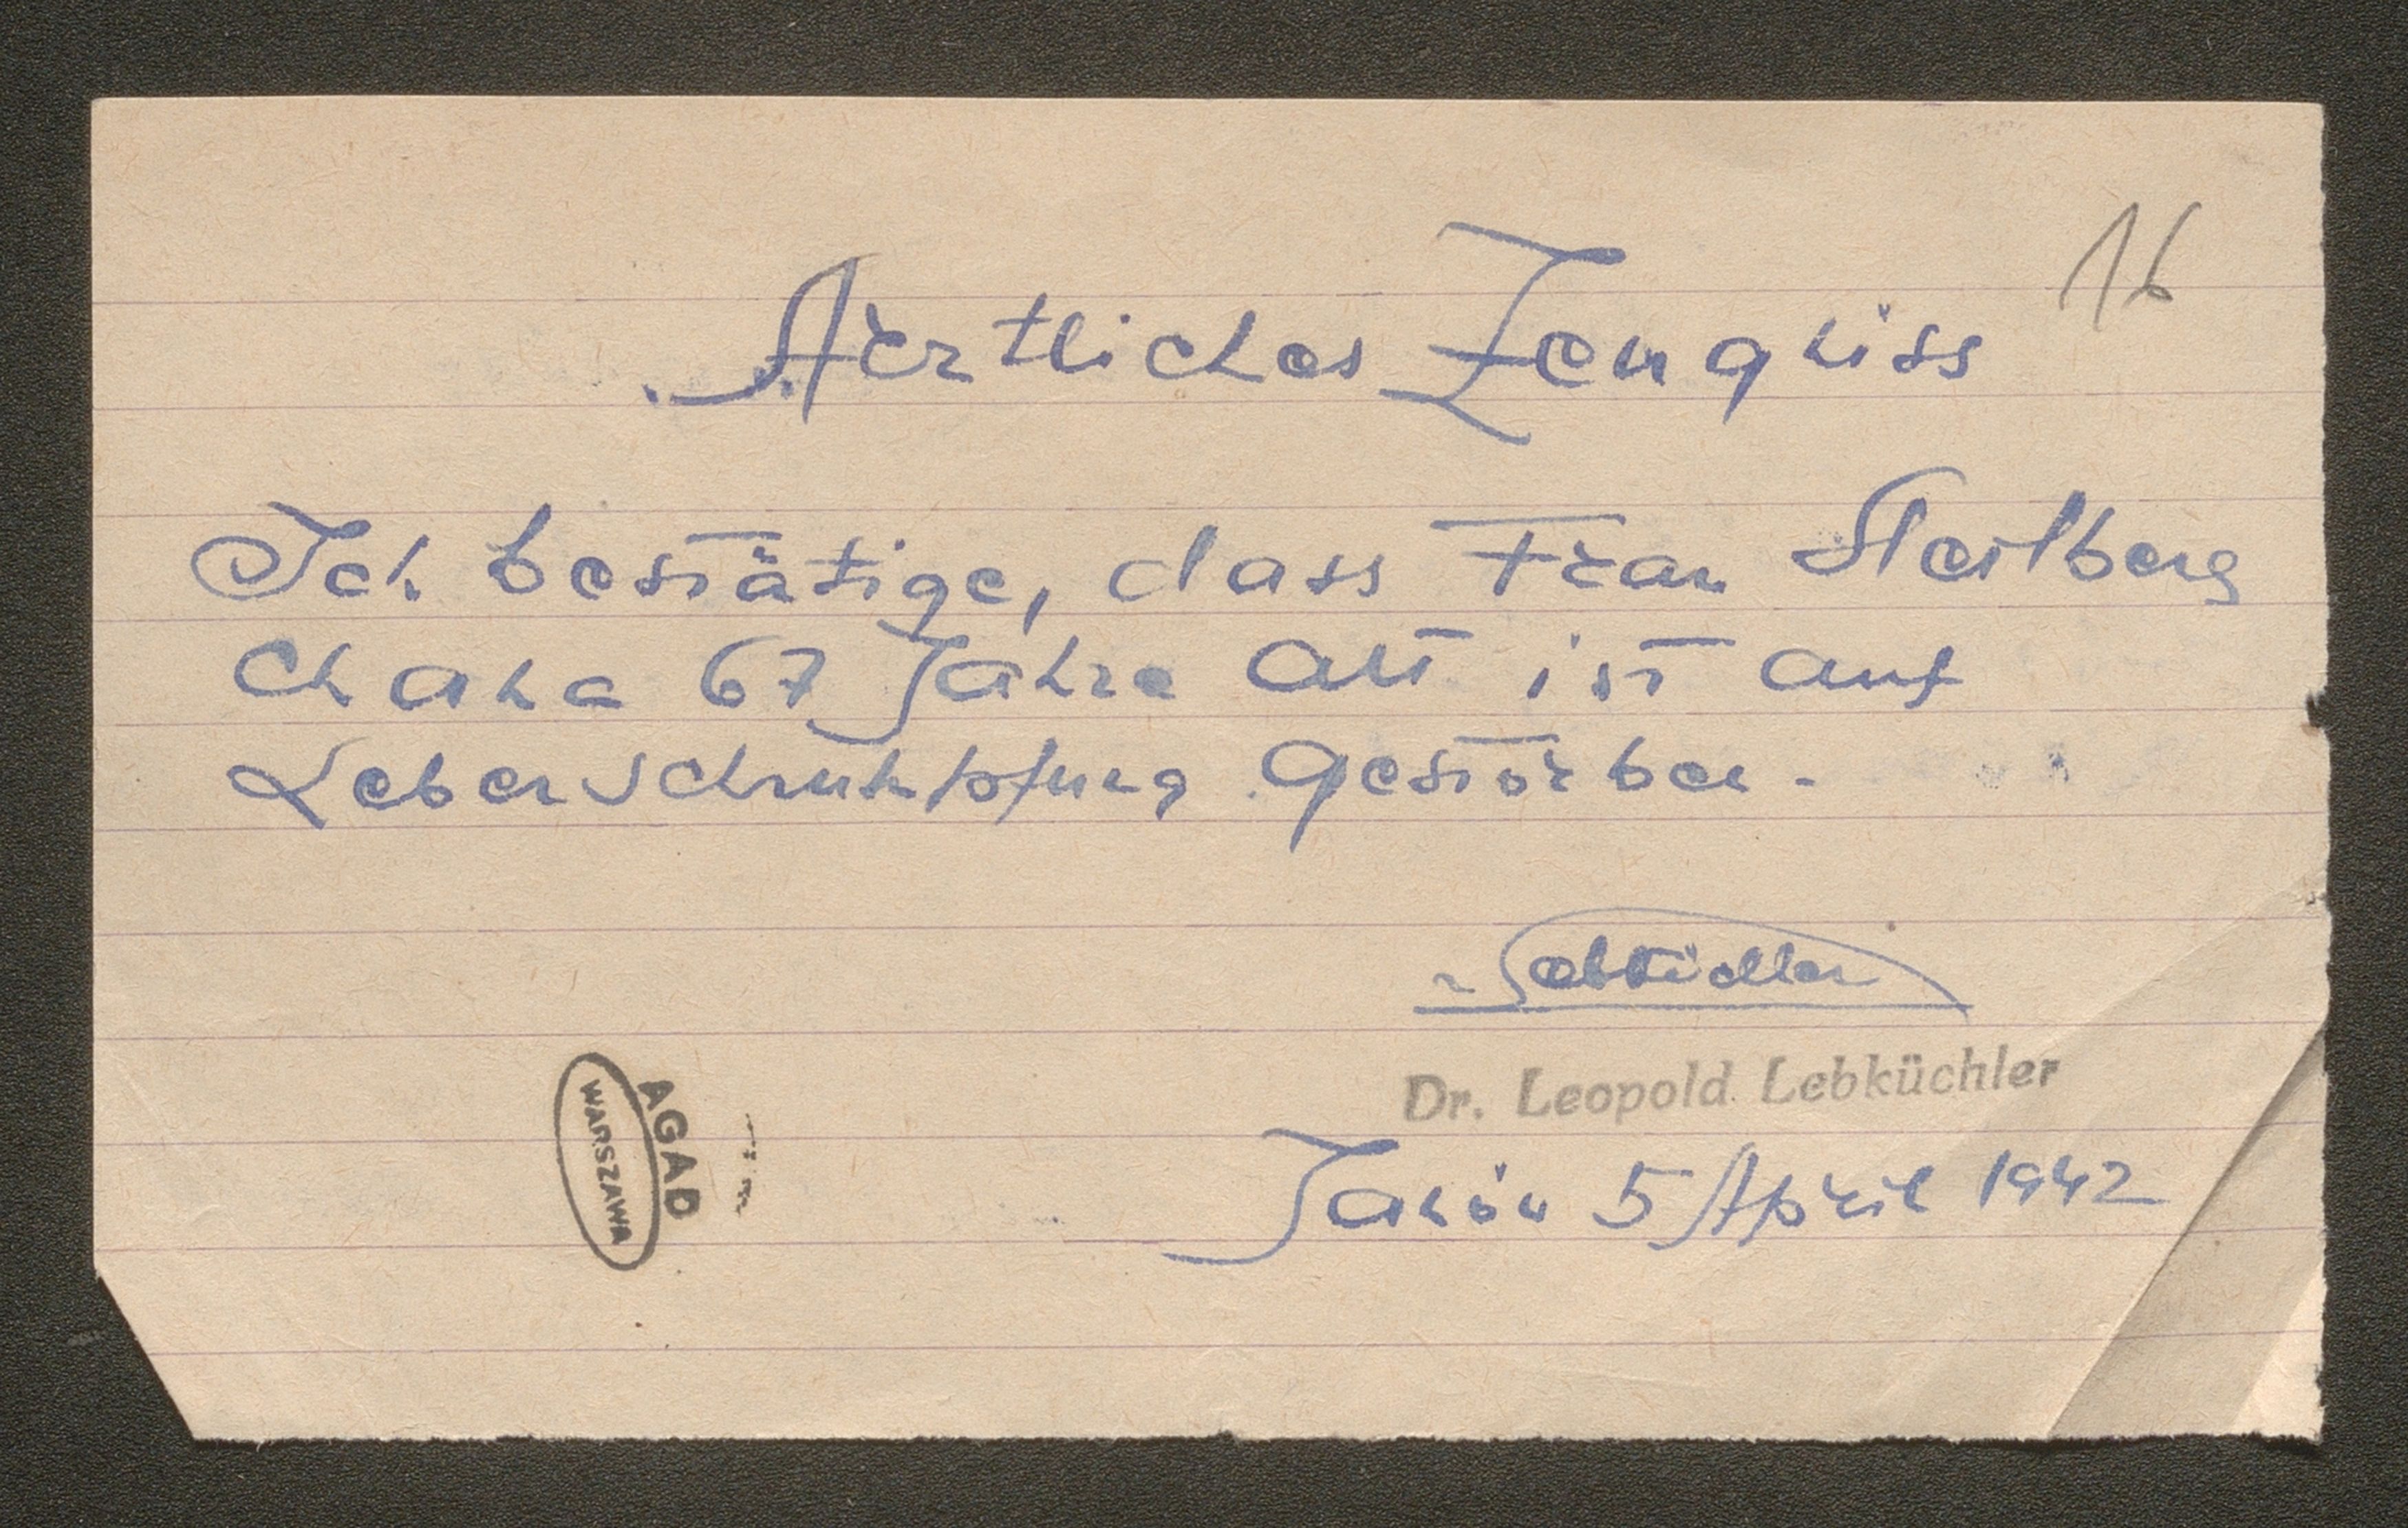 16
Aerztliches Zeugniss
Ich bestätige, dass Frau
Chana 67 Jahre alt ist auf
Leberschrumpfung gestorben.
Dr. Leopold Lebküchler
Janów 5 April 1942
AGAD
WARSZAWA